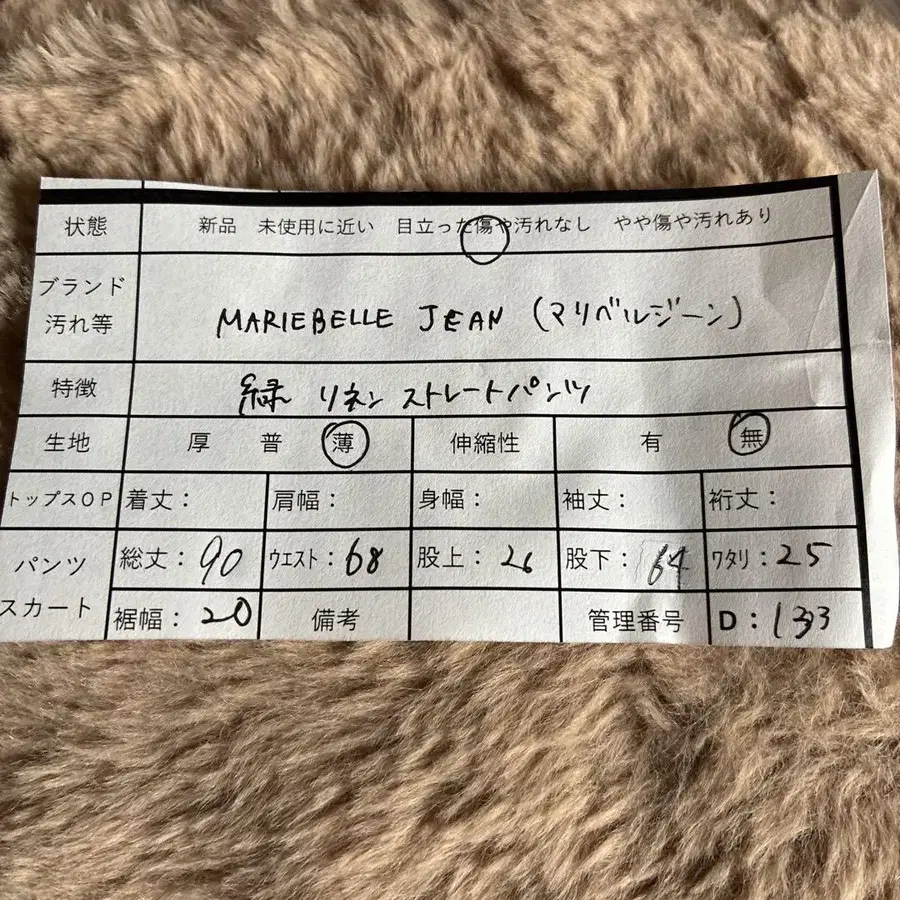 状態 新品 未使用に近い 目立った傷や汚れなし やや傷や汚れあり
ブランド
汚れ等 MARIEBELLE JEAN (マリベルジーン)
特徴 緑 リネン ストレートパンツ
生地 厚 普 薄 伸縮性 有 無
トップスOP 着丈: 肩幅: 身幅: 袖丈: 裄丈:
パンツ 総丈:90 ウエスト:68 股上:26 股下:64 ワタリ:25
スカート 裾幅:20 備考 管理番号 D:133